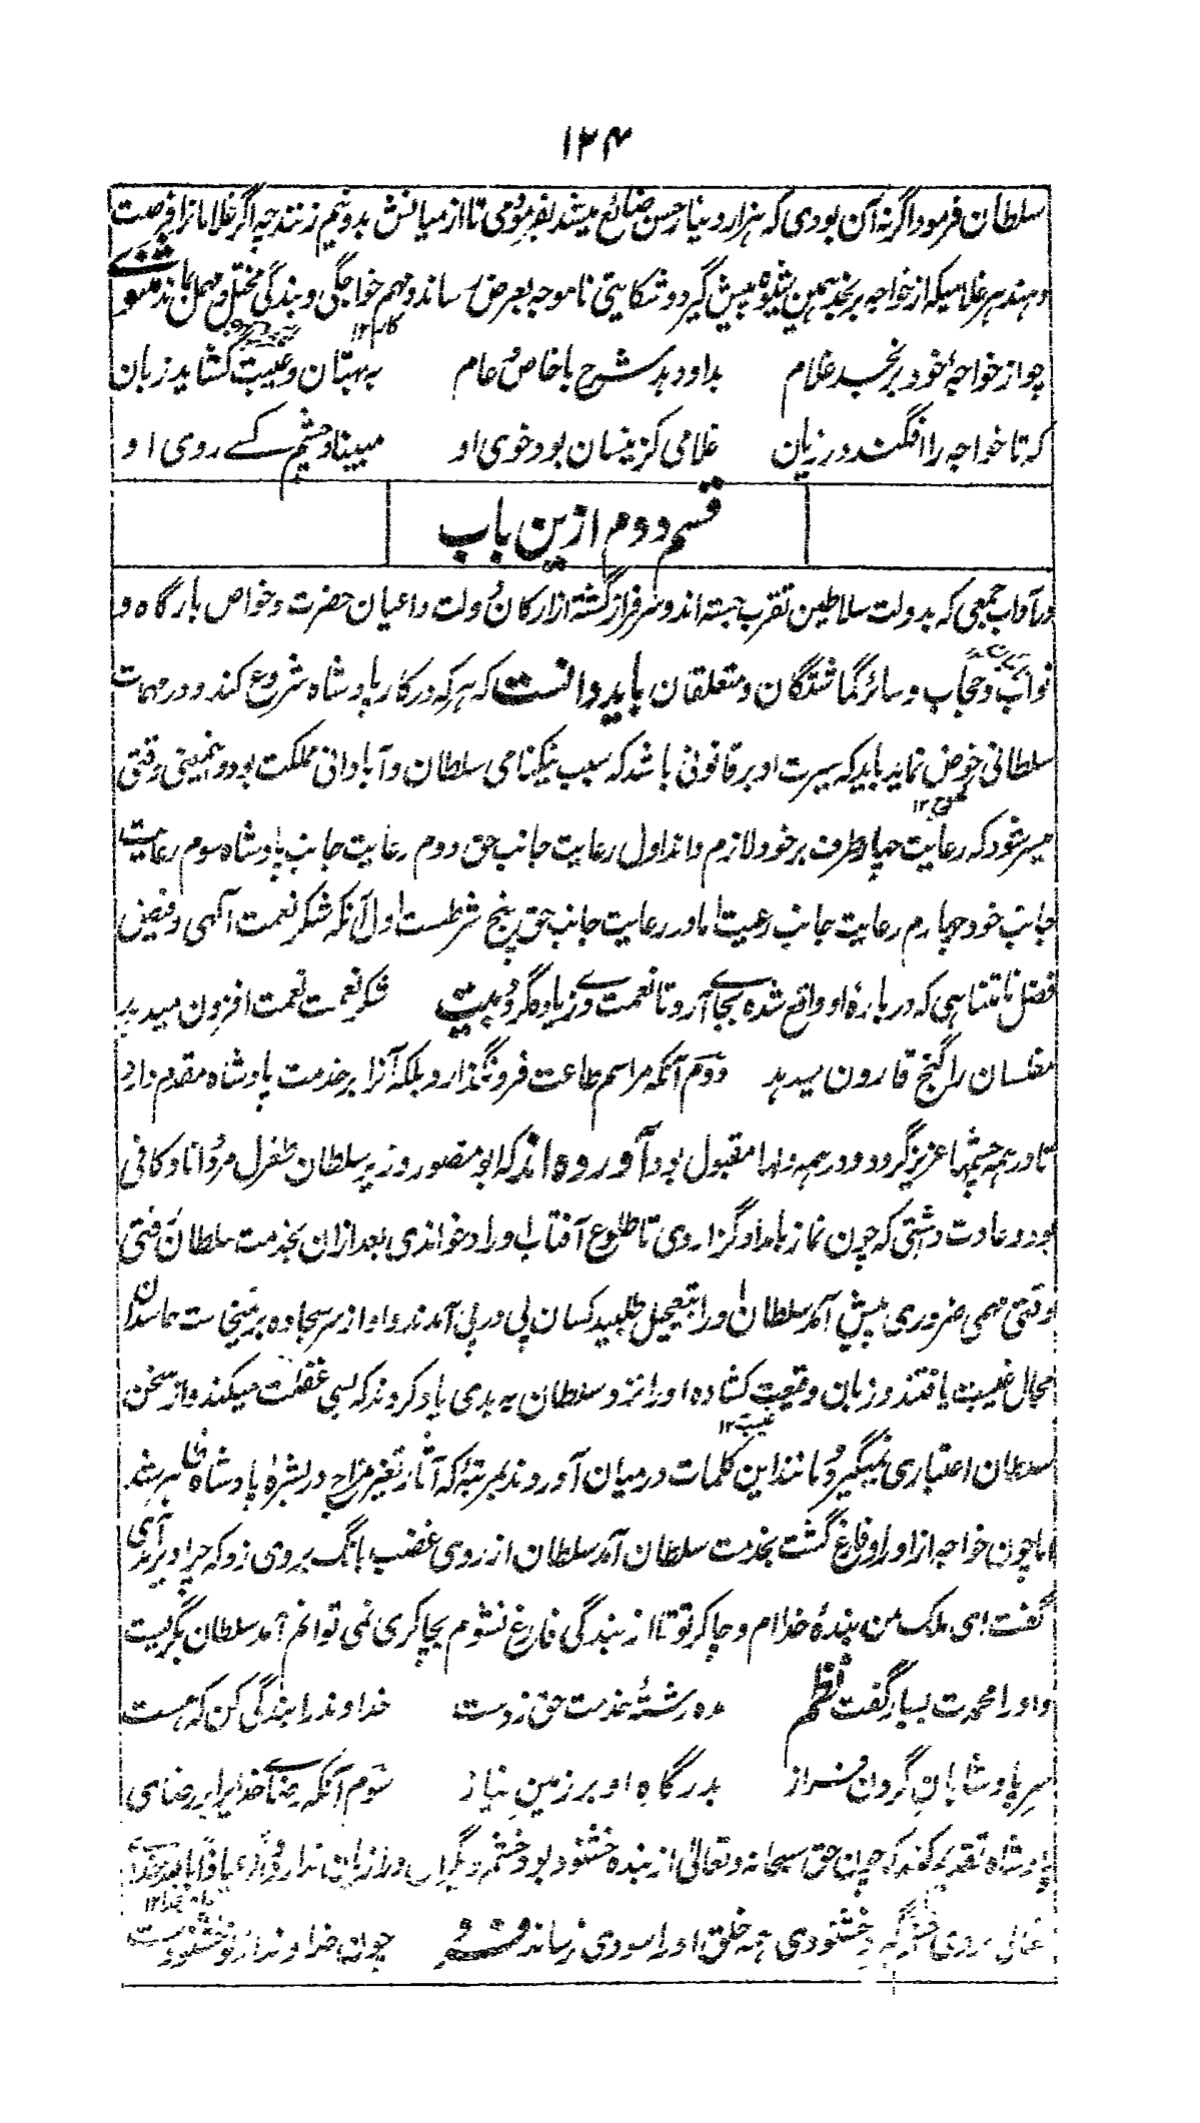 ۱۲۴
سلطان فرمود اگر نه آن بودی که هزار دینار حسن ضائع میشد بفرمودمی تا از میانش بدو نیم زنند چه اگر غلامانرا فرصت
دهند هر غلامیکه از خواجه برنجد همین شیوه پیش گیرد و شکایتی ناموجه بعرض رساند و مهم خواجگی و بندگی مختل و مهمل بماند مثنوی
چو از خواجهٔ خود برنجد غلام بداور برد شرح با خاص و عام به بهتان و غیبت کشاید زبان
که تا خواجه را افگند در زیان غلامی کزینسان بود خوی او مبیناد چشم کسے روی او
قسم دوم ازین باب
در آداب جمعی که بدولت سلاطین تقرب جسته اند و سرفراز گشته از ارکان دولت و اعیان حضرت و خواص بارگاه و
نواب و حجاب و سائر گماشتگان و متعلقان باید دانست که هر که در کار پادشاه شروع کند و در مهمات
سلطانی خوض نماید باید که سیرت او بر قانونی باشد که سبب نیکنامی سلطان و آبادانی مملکت بود و اینمعنی وقتی
میسر شود که رعایت چهار طرف بر خود لازم داند اول رعایت جانب حق دوم رعایت جانب پادشاه سوم رعایت
جانب خود چهارم رعایت جانب رعیت اما در رعایت جانب حق پنج شرطست اول آنکه شکر نعمت الٰهی و فیض
فضل نامتناهی که در بارهٔ او واقع شده بجاے آرد تا نعمت وے زیاده گردد بیت شکر نعمت نعمت افزون میدهد
مفلسان را گنج قارون میدهد دوم آنکه مراسم طاعت فرونگذارد بلکه آنرا بر خدمت پادشاه مقدم دارد
تا در همه چشمها عزیز گردد و در همه دلها مقبول بود آورده اند که ابو منصور وزیر سلطان طغرل مرد دانا و کافی
بود و عادت داشتی که چون نماز بامداد گزاردی تا طلوع آفتاب اوراد خواندی بعد ازان بخدمت سلطان رفتی
وقتی مهمی ضروری پیش آمد سلطان اورا بتعجیل طلبید کسان پی در پی آمدند و او از سر سجاده برنمیخاست حاسدان
مجال غیبت یافتند و زبان وقیعت کشاده اورا نزد سلطان به بدی یاد کردند که بسی غفلت میکند و از سخن
سلطان اعتباری نمیگیرد و مانند این کلمات در میان آوردند بمرتبهٔ که آثار تغیر مزاج در بشرهٔ پادشاه ظاهر شد
اما چون خواجه از اوراد فارغ گشت بخدمت سلطان آمد سلطان از روی غضب بانگ بر وی زد که چرا دیر آمدی
گفت ای ملک من بندهٔ خدا ام و چاکر تو تا از بندگی فارغ نشوم بچاکری نمی توانم آمد سلطان بگریست
و اورا محمدت بسیار گفت نظم مده رشتهٔ خدمت حق ز دست خداوند را بندگی کن که هست
سر پادشاهان گردن فراز بدرگاه او بر زمین نیاز سوم آنکه رضاے خدایرا بر رضای
پادشاه تقدیم کند که چون حق سبحانه و تعالیٰ از بنده خشنود بود خشم دیگران ورا زیان ندارد و
روی خشم گیرد خشنودی همه خلق اورا سودی نرساند فرد چون خداوند از تو خشنودست